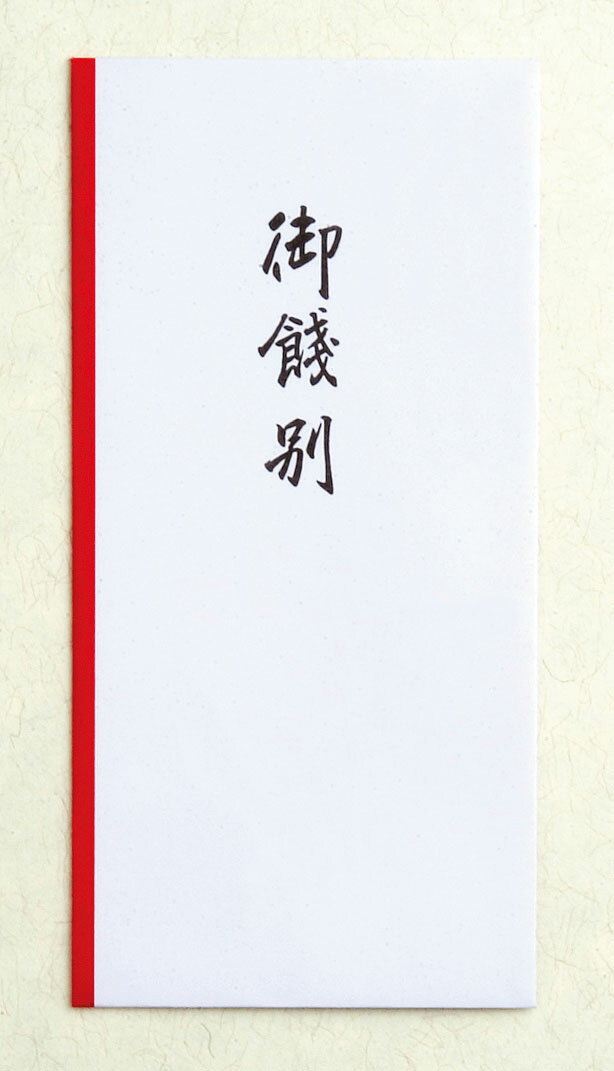 御餞別